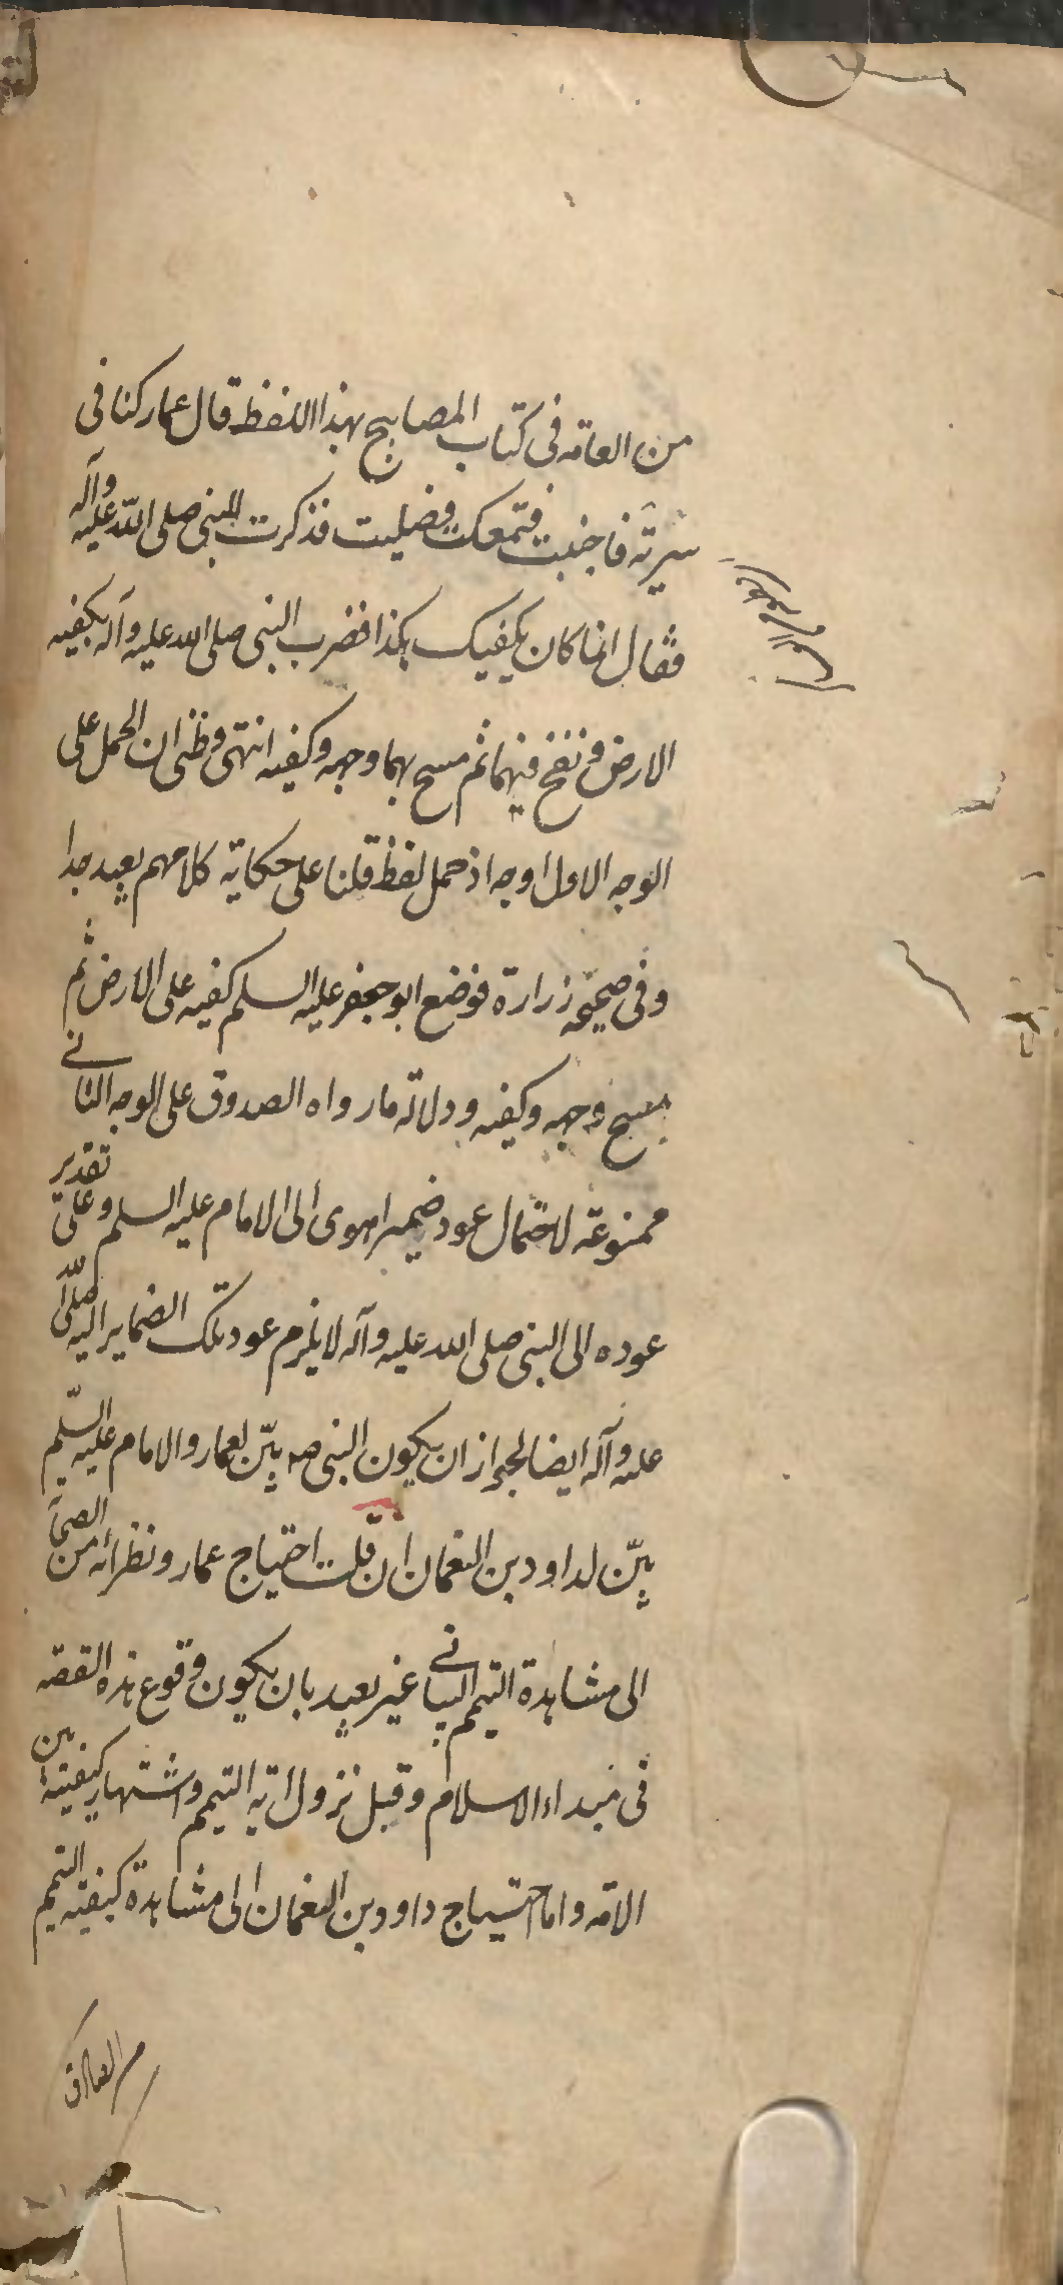 من العامه فى كتاب المصابيح بهذا اللفظ قال عمار كنا فى
سرية فاجنبت فتمعكت فصليت فذكرت للنبى صلى الله عليه وآله
فقال انما كان يكفيك هكذا فضرب النبى صلى الله عليه وآله بكفيه
الارض و نفخ فيهما ثم مسح بهما وجهه وكفيه انتهى وظنى ان الحمل على
الوجه الاول اوجه اذ حمل لفظ قلنا على حكاية كلامهم بعيد جدا
وفى صحيحة زرارة فوضع ابو جعفر عليه السلم كفيه على الارض ثم
مسح وجهه وكفيه ودلالة ما رواه الصدوق على الوجه الثانى
ممنوعة لاحتمال عود ضمير اهوى الى الامام عليه السلم وعلى تقدير
عوده الى النبى صلى الله عليه وآله لا يلزم عود تلك الضماير اليه صلى الله
عليه وآله ايضا لجواز ان يكون النبى صه بيّن لعمار والامام عليه السّلم
بيّن لداود بن النعمان ان قلت احتياج عمار ونظرائه من الصحابة
الى مشاهدة التيمم البيانى غير بعيد بان يكون وقوع هذه القصه
فى مبداء الاسلام وقبل نزول اية التيمم واشتهار كيفيته بين
الامه واما احتياج داود بن النعمان الى مشاهدة كيفيه التيمم